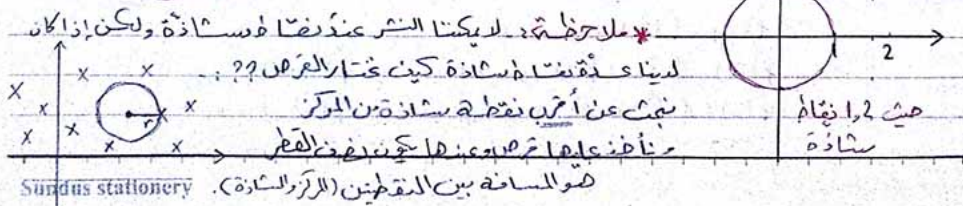 * ملاحظة: لا يمكننا النشر عند نقاط شاذة ولكن إذا كان
لدينا عدة نقاط شاذة كيف نختار القرص ??:
نبحث عن أقرب نقطة شاذة من المركز
ونأخذ عليها قرص وعندها يكون نصف القطر
هو المسافة بين النقطتين (المركز والشاذة).
2
حيث 2 و نقاط
شاذة
r
Sundus stationery